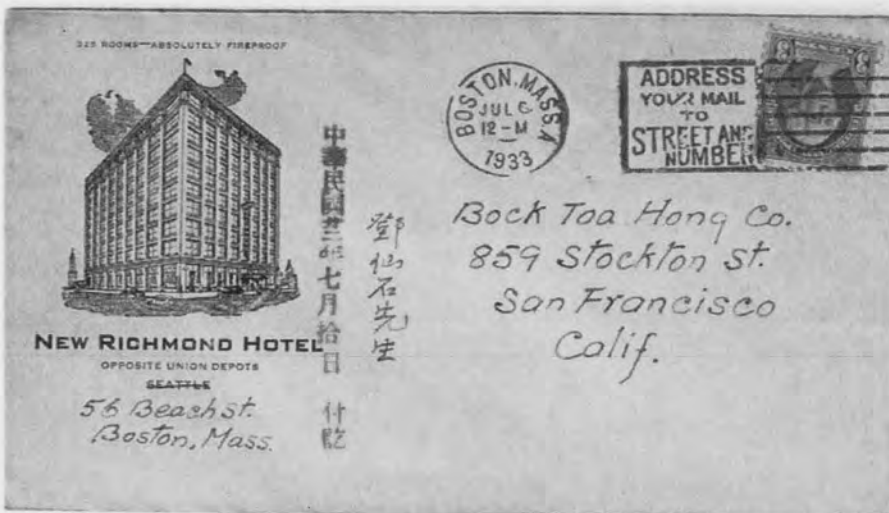 325 ROOMS—ABSOLUTELY FIREPROOF
NEW RICHMOND HOTEL
OPPOSITE UNION DEPOTS
SEATTLE
56 Beach st.
Boston, Mass.
中華民國廿二年七月拾日 付訖
鄧仙石先生
BOSTON, MASS.
JUL 6
12-M
1933
ADDRESS
YOUR MAIL
TO
STREET AND
NUMBER
Bock Toa Hong Co.
859 Stockton st.
San Francisco
Calif.